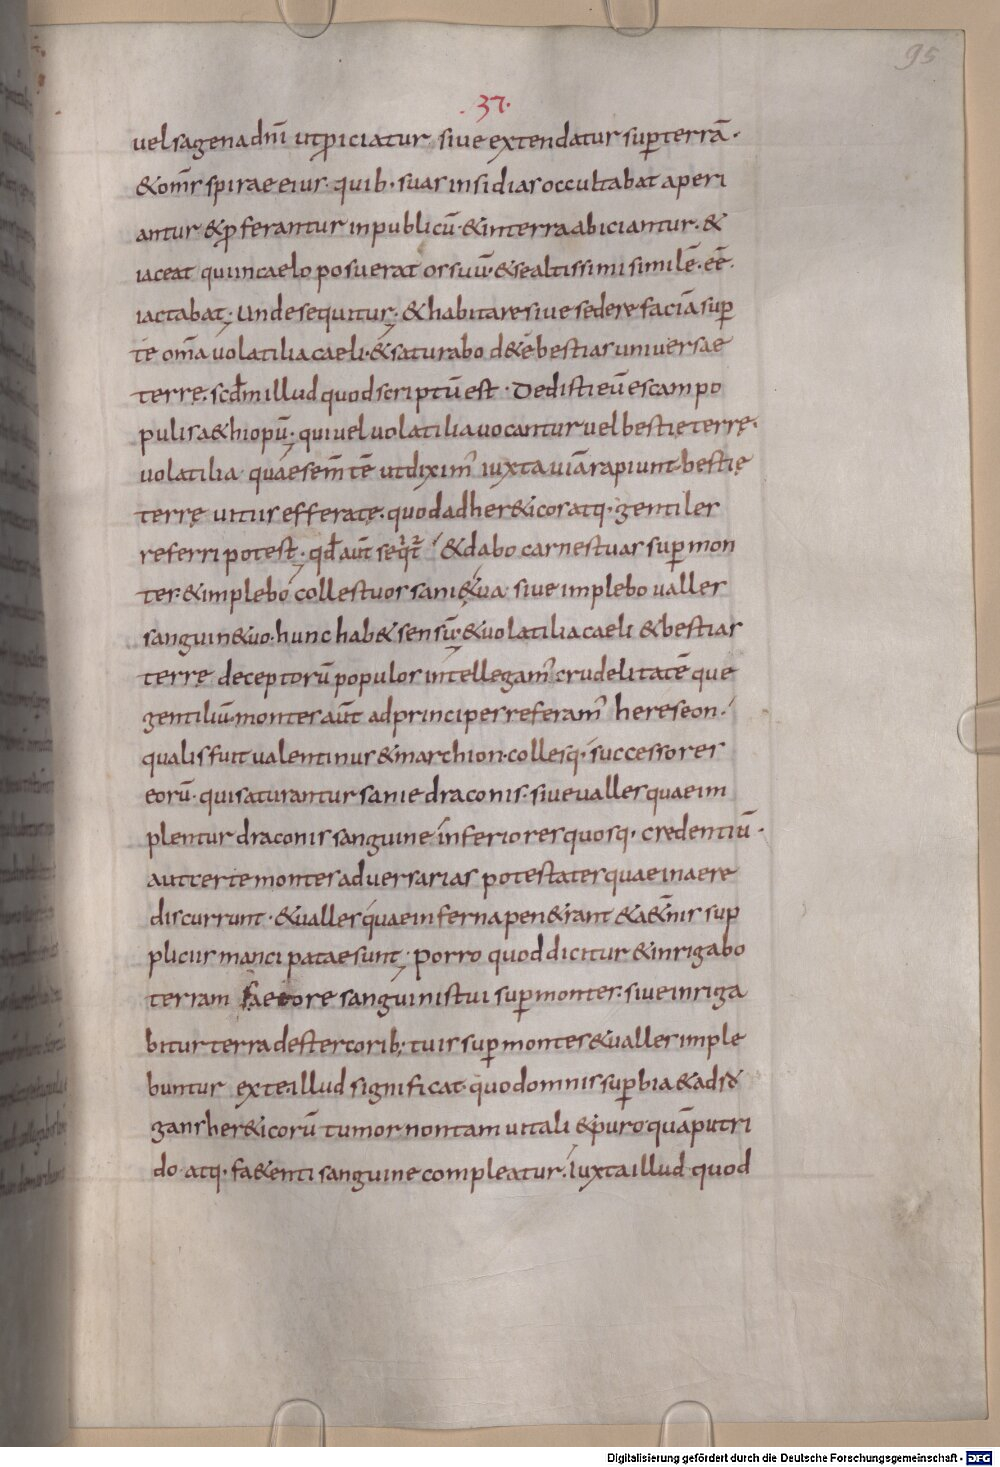 95
.37.
uel sagena dnī ut ꝓiciatur. siue extendatur suꝑ terrā.
& om̄s spirae eius. quib. suas insidias occultabat aperi
antur & ꝓferantur in publicū. & in terra abiciantur. &
iaceat qui in caelo posuerat os suū. & se altissimi similē. eē.
iactabat; Unde sequitur; & habitare siue sedere faciā suꝑ
te om̄a uolatilia caeli. & saturabo de te bestias uniuersae
terrę. scdm illud quod scriptū est. Dedisti eū escam po
pulis aethiopū; qui uel uolatilia uocantur uel bestię terrę.
uolatilia quae semtē ut diximꝰ iuxta uiā rapiunt. bestię
terrę uitiis efferatę. quod ad her&icos atq. gentiles
referri potest; qd aūt seqt̄ & dabo carnes tuas suꝑ mon
tes. & implebo colles tuos sanie tua siue implebo ualles
sanguine tuo. hunc hab& sensū; & uolatilia caeli & bestias
terrę deceptorū populos intellegamꝰ crudelitatē que
gentiliū. montes aūt ad principes referamꝰ hereseon.
qualis fuit ualentinus & marchion. collesq. successores
eorū. qui saturantur sanie draconis. siue ualles quae im
plentur draconis sanguine inferiores quosq. credentiū.
aut certe montes aduersarias potestates quae in aere
discurrunt. & ualles quae inferna pen&rant & a&nis sup
pliciis mancipatae sunt; Porro quod dicitur & inrigabo
terram faetore sanguinis tui suꝑ montes. siue inriga
bitur terra de stercorib; tuis suꝑ montes & ualles imple
buntur ex te. illud significat. quod omnis suꝑbia & adsur
gans her&icorū tumor non tam uitali & puro quā putri
do atq. fa&enti sanguine compleatur. Iuxta illud quod
Digitalisierung gefördert durch die Deutsche Forschungsgemeinschaft - DFG